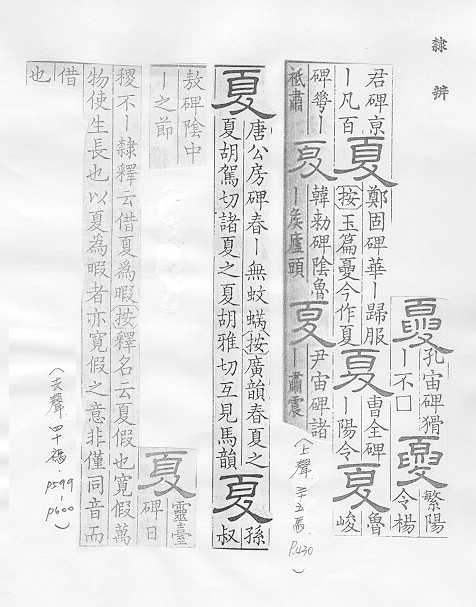 隸辨
夓
孔宙碑猾
｜不囗
夓
繁陽
令楊
君碑亰
｜凡百
夏
鄭固碑華｜歸服
按玉篇憂今作夏
夏
曹全碑
｜陽令
夏
魯
峻
祇肅
夏
韓勑碑陰魯
｜矦廬頭
夏
尹宙碑諸
｜肅震
(上聲 三十五馬, P.430)
夏
唐公房碑春｜無蚊蟎按廣韻春夏之
夏胡駕切諸夏之夏胡雅切互見馬韻
夏
孫
叔
敖碑陰中
｜之節
夏
靈臺
碑日
稷不｜隸釋云借夏為暇按釋名云夏假也寬假萬
物使生長也以夏為暇者亦寬假之意非僅同音而
借
也
(去聲 四十禡. p599-p600)